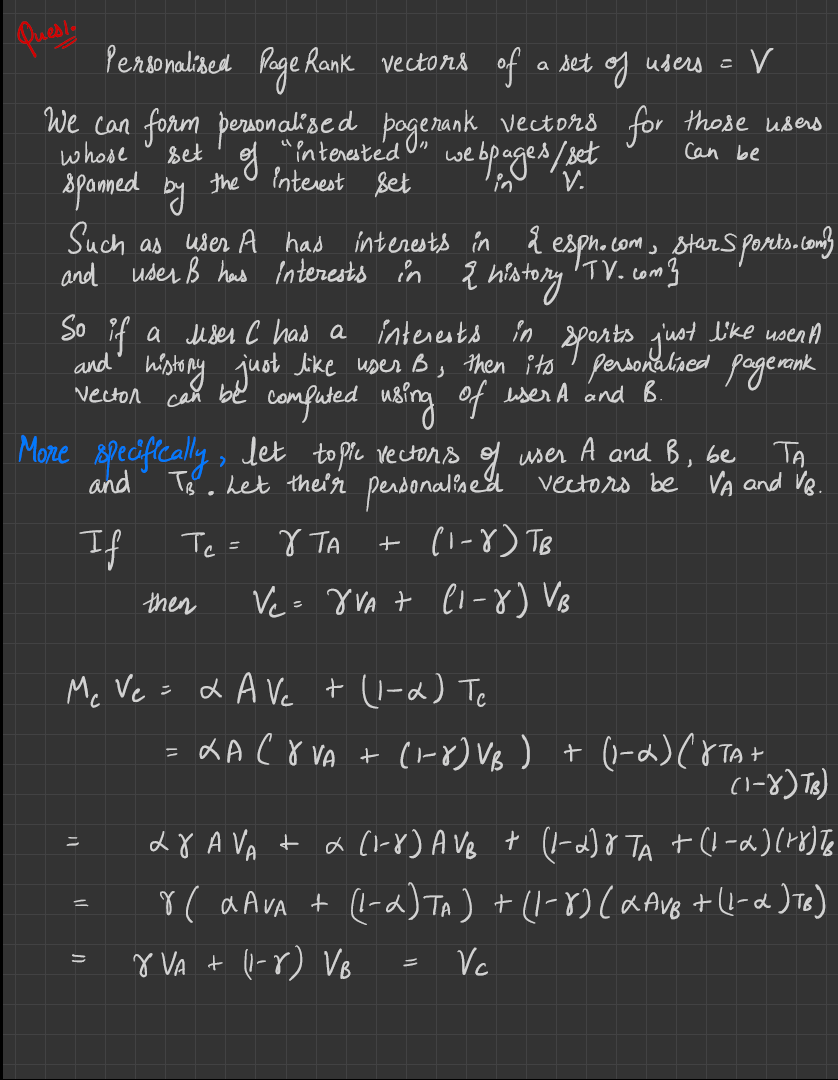 Ques1.
Personalised PageRank vectors of a set of users = V
We can form personalised pagerank vectors for those users
whose set of "interested" webpages/set can be
spanned by the interest set in V.
Such as user A has interests in { esph.com, starSports.com}
and user B has interests in { history TV.com}
So if a user C has a interests in sports just like user A
and history just like user B, then its personalised pagerank
vector can be computed using of user A and B.
More specifically, let topic vectors of user A and B, be TA
and TB. Let their personalised vectors be VA and VB.
If Tc = γ TA + (1-γ) TB
then Vc = γ VA + (1-γ) VB
Mc Vc = α A Vc + (1-α) Tc
= αA ( γ VA + (1-γ) VB ) + (1-α) ( γ TA +
(1-γ) TB)
= αγ A VA + α (1-γ) A VB + (1-α) γ TA + (1-α) (1-γ) TB
= γ ( αAVA + (1-α) TA ) + (1-γ) ( αAVB + (1-α) TB)
= γ VA + (1-γ) VB = Vc